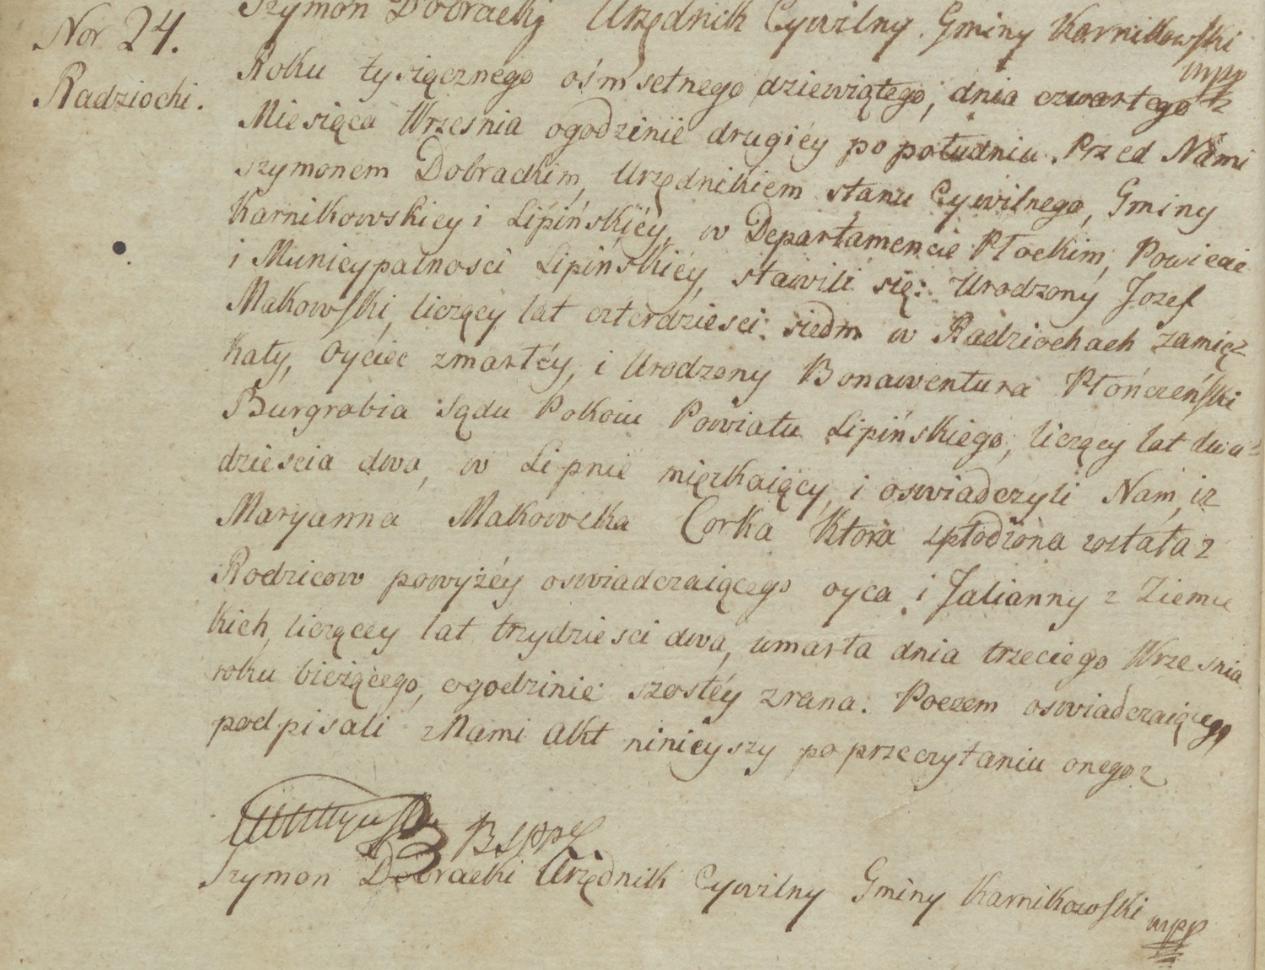 Szymon Dobracki Urzędnik Cywilny Gminy Karnikowski
mpp
Nor 24.
Radziochi.
Roku tysiącznego ośmsetnego dziewiątego, dnia czwartego
Miesiąca Września ogodzinie drugiéy po południu. Przed Nami
szymonem Dobrackim, Urzędnikiem stanu Cywilnego, Gminy
Karnikowskiey i Lipińskiéy, w Departamencie Płockim, Powiecie
i Municypalnosci Lipińskiéy, stawili się: Urodzony Jozef
Makowski, liczący lat czterdziesci siedm w Radziochach zamięsz
kały, Oyciec zmarłéy, i Urodzony Bonawentura Płończeński
Burgrabia Sądu Pokoiu Powiatu Lipińskiego, liczący lat dwa=
dziescia dwa, w Lipnie mięszkaiący, i oswiadczyli Nam, iz
Maryanna Makowska Corka Ktora spłodzona została z
Rodzicow powyżéy oswiadczaiącego oyca i Julianny z Ziemec
kich, liczącey lat trzydziesci dwa, umarła dnia trzeciego Wrzesnia
roku bieżącego, ogodzinie szostéy zrana. Poczem oswiadczaiącego
podpisali z Nami Akt ninieyszy po przeczytaniu onegoz
Szymon Dobracki Urzędnik Cywilny Gminy Karnikowski
mpp